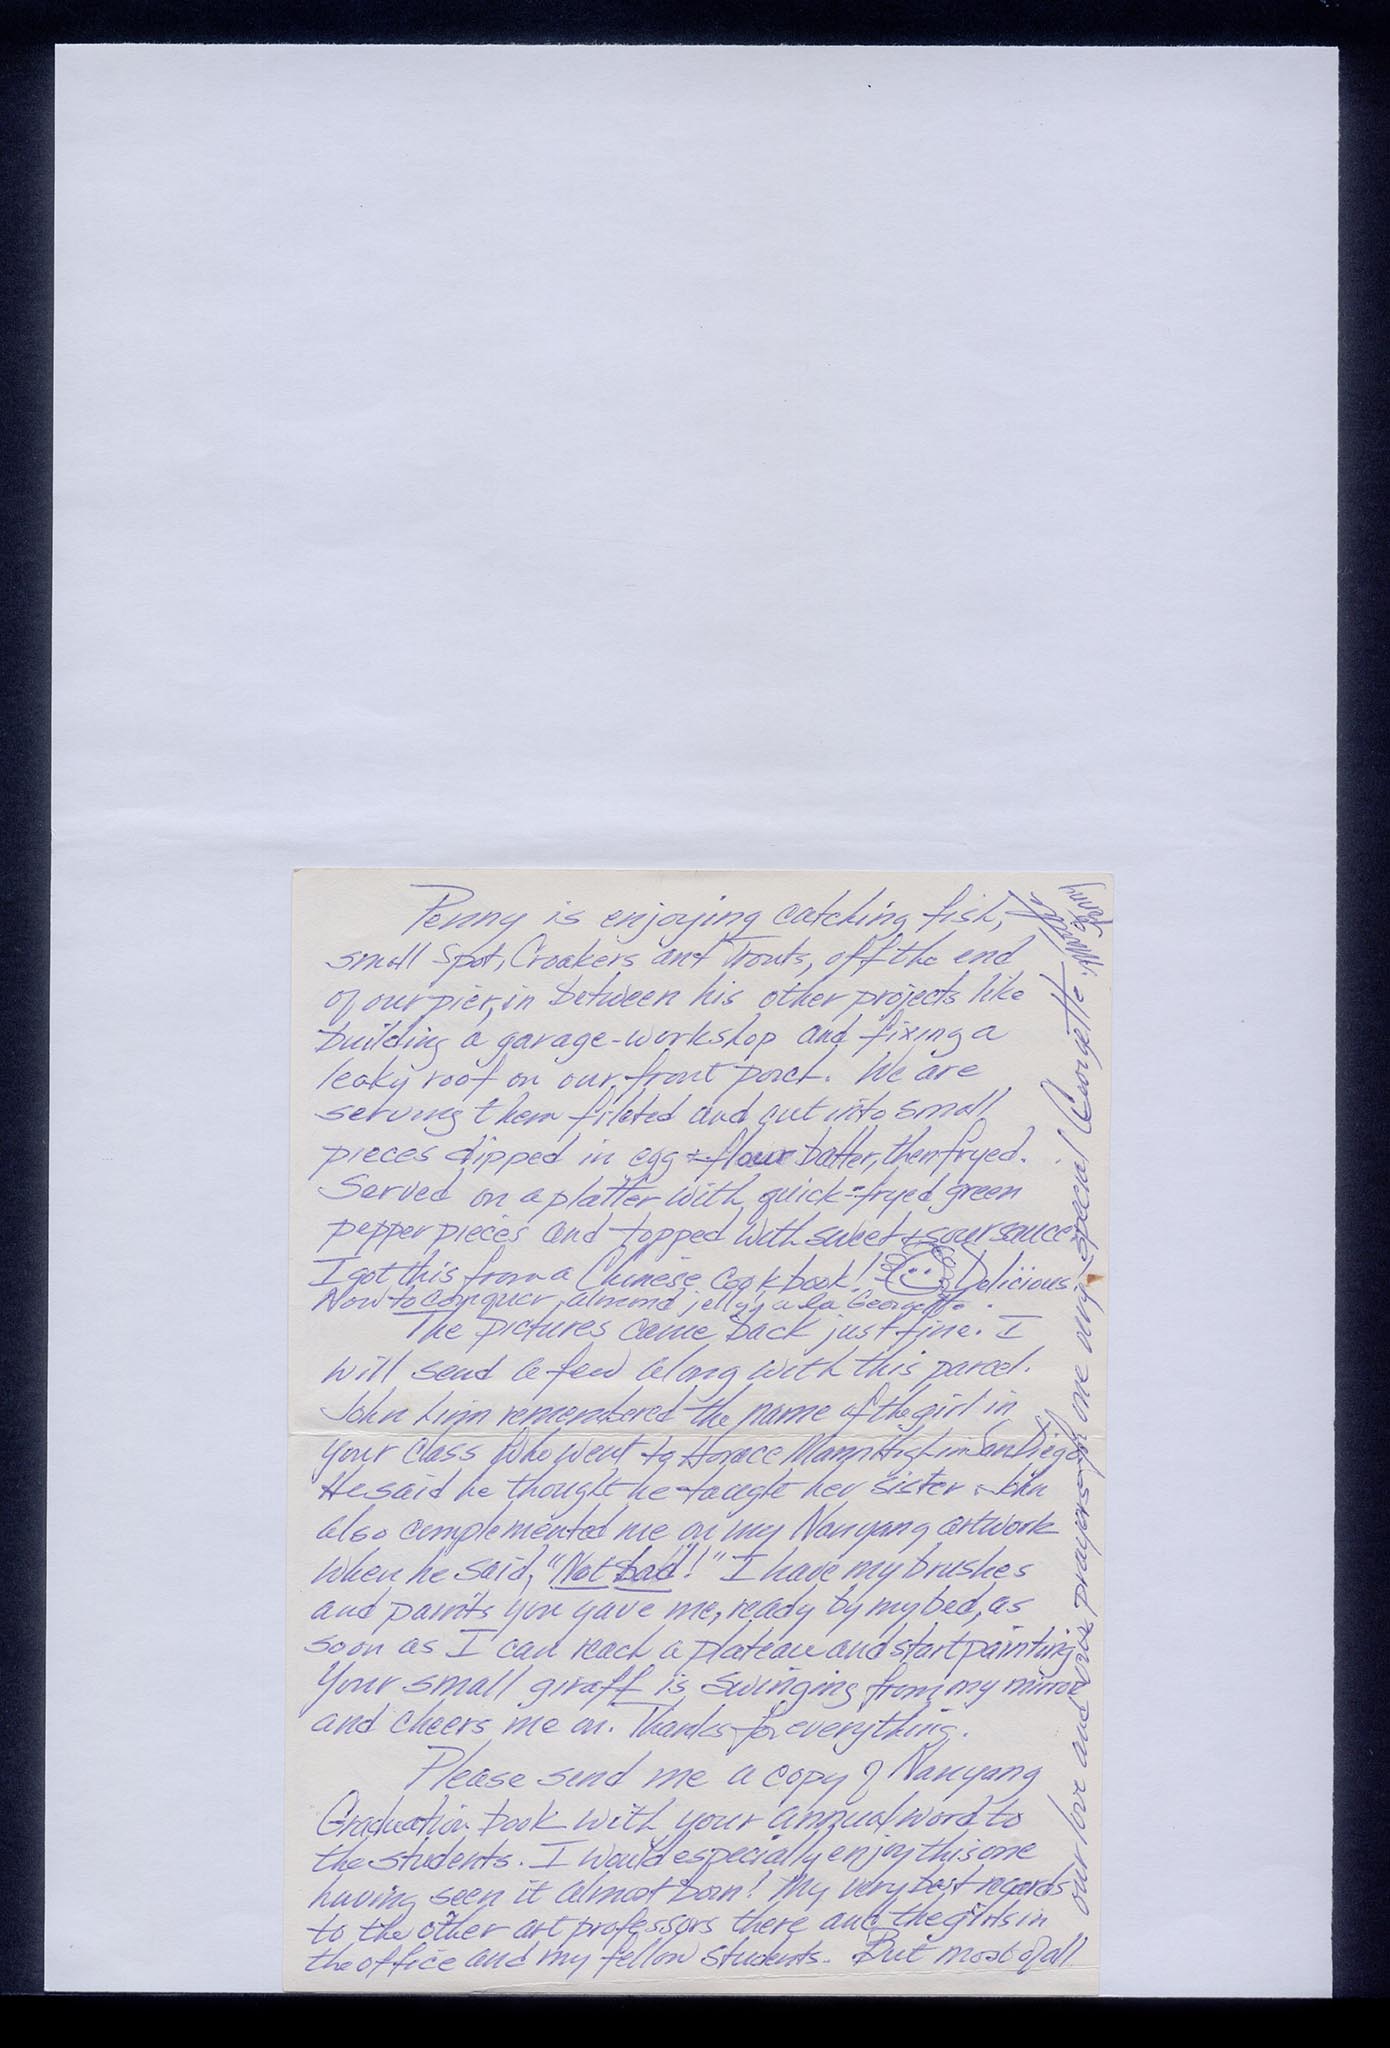 Penny is enjoying catching fish,
small Spot, Croakers and Trouts, off the end
of our pier, in between his other projects like
building a garage-workshop and fixing a
leaky roof on our front porch. We are
serving them fileted and cut into small
pieces dipped in egg & flour batter, then fryed.
Served on a platter with quick-fryed green
pepper pieces and topped with sweet & sour sauce
I got this from a Chinese cookbook! Delicious
Now to conquer almond jelly a la Georgette.
The pictures came back just fine. I
will send a few along with this parcel.
John Linn remembered the name of the girl in
your class who went to Horace Mann High in San Diego
He said he thought he taught her sister. John
also complemented me on my Nanyang artwork
when he said, "Not bad!" I have my brushes
and paints you gave me, ready by my bed, as
soon as I can reach a plateau and start painting
Your small giraff is swinging from my mirror
and cheers me on. Thanks for everything.
Please send me a copy of Nanyang
Graduation book with your annual word to
the students. I would especially enjoy this one
having seen it almost born! My very best regards
to the other art professors there and the girls in
the office and my fellow students. But most of all
our love and prayers for one very special Georgette.
Penny